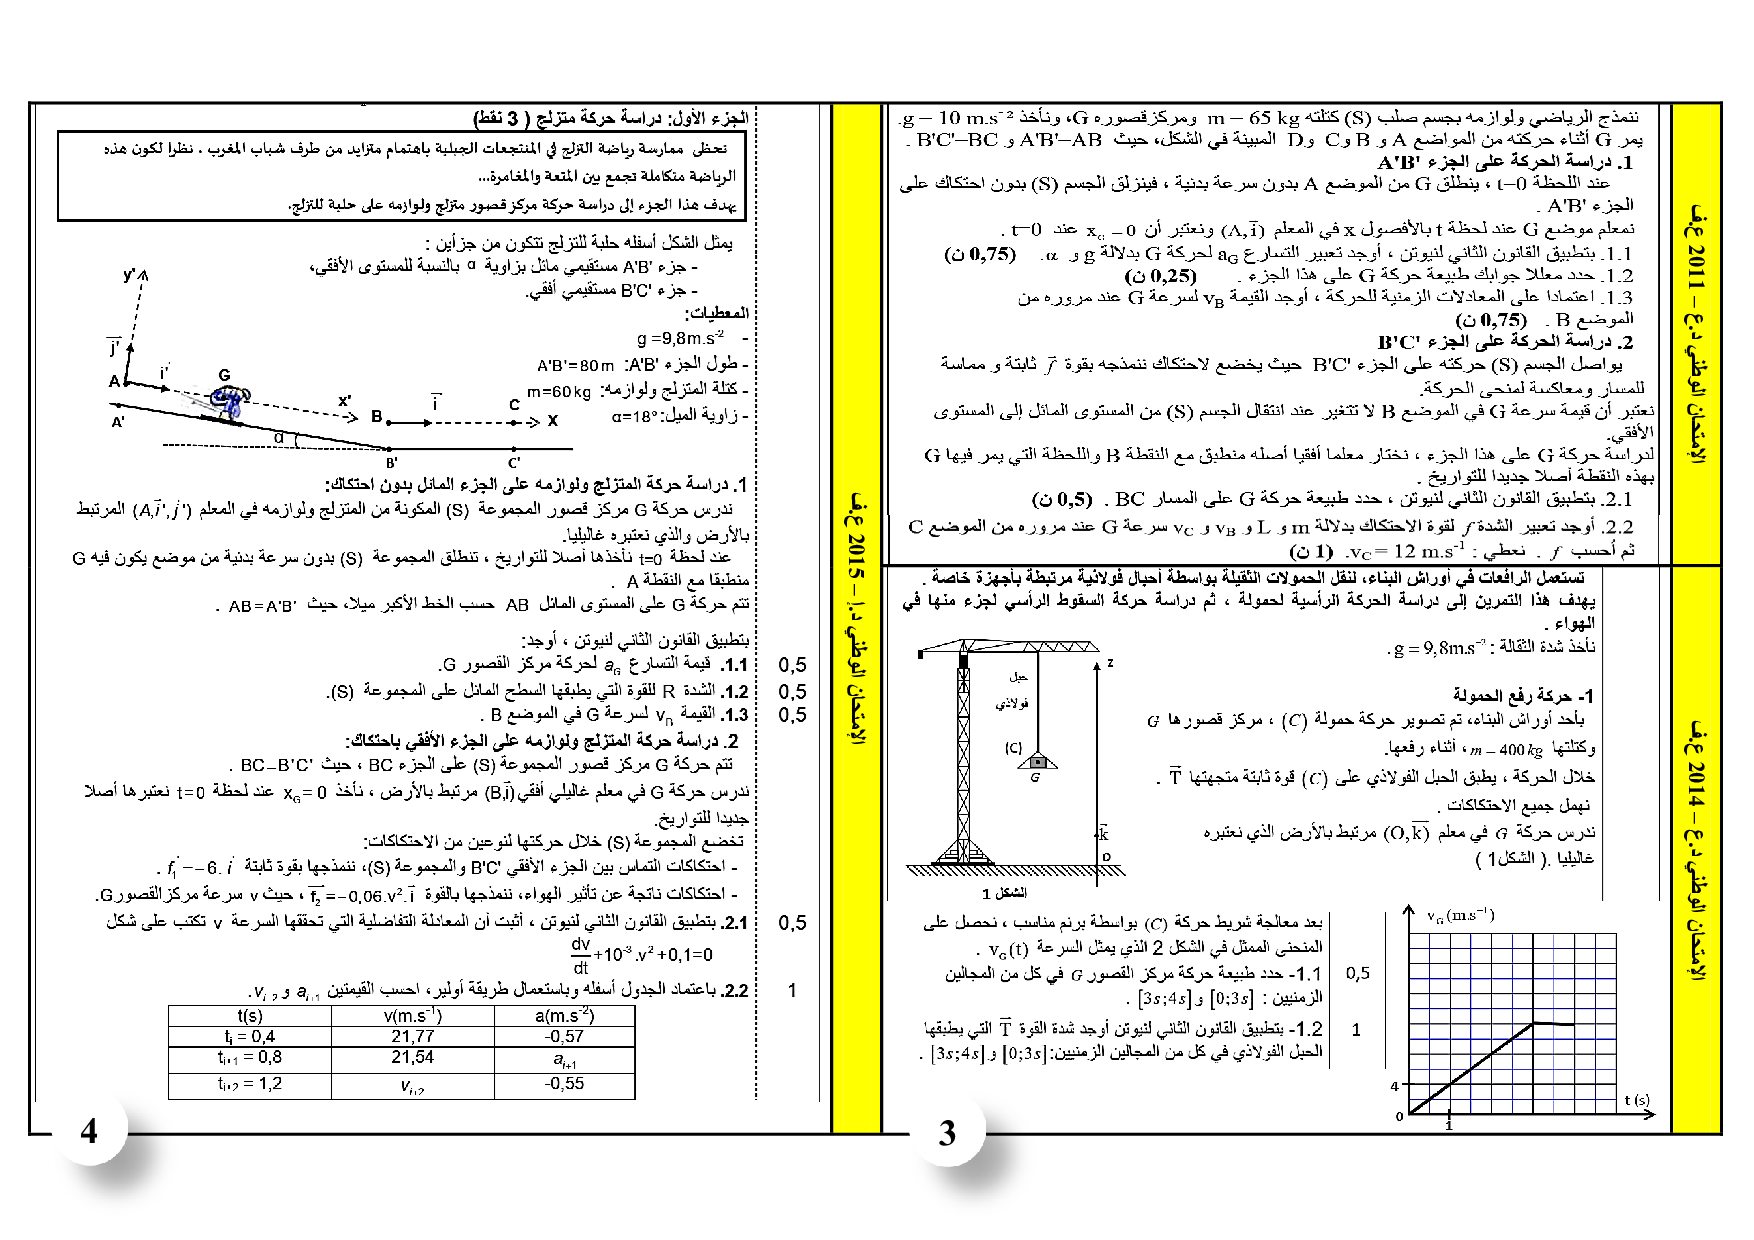 ننمذج الرياضي ولوازمه بجسم صلب (S) كتلته m = 65 kg ومركز قصوره G، ونأخذ g = 10 m.s⁻².
يمر G أثناء حركته من المواضع A و B و C و D المبينة في الشكل، حيث A'B'=AB و B'C'=BC .
1. دراسة الحركة على الجزء A'B'
عند اللحظة t=0 ، ينطلق G من الموضع A بدون سرعة بدنية ، فينزلق الجسم (S) بدون احتكاك على
الجزء A'B' .
نمعلم موضع G عند لحظة t بالأفصول x في المعلم (A,i⃗) ونعتبر أن x_G = 0 عند t=0 .
1.1. بتطبيق القانون الثاني لنيوتن ، أوجد تعبير التسارع a_G لحركة G بدلالة g و α. (0,75 ن)
1.2. حدد معللا جوابك طبيعة حركة G على هذا الجزء . (0,25 ن)
1.3. اعتمادا على المعادلات الزمنية للحركة ، أوجد القيمة v_B لسرعة G عند مروره من
الموضع B . (0,75 ن)
2. دراسة الحركة على الجزء B'C'
يواصل الجسم (S) حركته على الجزء B'C' حيث يخضع لاحتكاك ننمذجه بقوة f⃗ ثابتة و مماسة
للمسار ومعاكسة لمنحى الحركة.
نعتبر أن قيمة سرعة G في الموضع B لا تتغير عند انتقال الجسم (S) من المستوى المائل إلى المستوى
الأفقي.
لدراسة حركة G على هذا الجزء ، نختار معلما أفقيا أصله منطبق مع النقطة B واللحظة التي يمر فيها G
بهذه النقطة أصلا جديدا للتواريخ .
2.1. بتطبيق القانون الثاني لنيوتن ، حدد طبيعة حركة G على المسار BC . (0,5 ن)
2.2. أوجد تعبير الشدة f لقوة الاحتكاك بدلالة m و L و v_B و v_C سرعة G عند مروره من الموضع C
ثم أحسب f . نعطي : v_C = 12 m.s⁻¹. (1 ن)
الإمتحان الوطني د.ع – 2011 ع.ف
تستعمل الرافعات في أوراش البناء، لنقل الحمولات الثقيلة بواسطة أحبال فولاذية مرتبطة بأجهزة خاصة .
يهدف هذا التمرين إلى دراسة الحركة الرأسية لحمولة ، ثم دراسة حركة السقوط الرأسي لجزء منها في
الهواء .
نأخذ شدة الثقالة : g = 9,8m.s⁻² .
1- حركة رفع الحمولة
بأحد أوراش البناء، تم تصوير حركة حمولة (C) ، مركز قصورها G
وكتلتها m = 400 kg ، أثناء رفعها.
خلال الحركة ، يطبق الحبل الفولاذي على (C) قوة ثابتة متجهتها T⃗ .
نهمل جميع الاحتكاكات .
ندرس حركة G في معلم (O,k⃗) مرتبط بالأرض الذي نعتبره
غاليليا .( الشكل1 )
z
حبل
فولاذي
(C)
G
k⃗
O
الشكل 1
بعد معالجة شريط حركة (C) بواسطة برنم مناسب ، نحصل على
المنحنى الممثل في الشكل 2 الذي يمثل السرعة v_G(t) .
1.1- حدد طبيعة حركة مركز القصور G في كل من المجالين 0,5
الزمنيين : [0;3s] و [3s;4s] .
1.2- بتطبيق القانون الثاني لنيوتن أوجد شدة القوة T⃗ التي يطبقها 1
الحبل الفولاذي في كل من المجالين الزمنيين: [0;3s] و [3s;4s] .
v_G (m.s⁻¹)
4
0
1
t (s)
الإمتحان الوطني د.ع – 2014 ع.ف
3
الجزء الأول: دراسة حركة متزلج ( 3 نقط)
تحظى ممارسة رياضة التزلج في المنتجعات الجبلية باهتمام متزايد من طرف شباب المغرب ، نظرا لكون هذه
الرياضة متكاملة تجمع بين المتعة والمغامرة...
يهدف هذا الجزء إلى دراسة حركة مركز قصور متزلج ولوازمه على حلبة للتزلج.
يمثل الشكل أسفله حلبة للتزلج تتكون من جزأين :
- جزء A'B' مستقيمي مائل بزاوية α بالنسبة للمستوى الأفقي،
- جزء B'C' مستقيمي أفقي.
المعطيات:
- g =9,8m.s⁻²
- طول الجزء A'B': A'B'=80m
- كتلة المتزلج ولوازمه: m=60kg
- زاوية الميل: α=18°
y'
j⃗'
A
i⃗'
G
x'
A'
α
B
i⃗
C
x
B'
C'
1. دراسة حركة المتزلج ولوازمه على الجزء المائل بدون احتكاك:
ندرس حركة G مركز قصور المجموعة (S) المكونة من المتزلج ولوازمه في المعلم (A,i⃗',j⃗') المرتبط
بالأرض والذي نعتبره غاليليا.
عند لحظة t=0 نأخذها أصلا للتواريخ ، تنطلق المجموعة (S) بدون سرعة بدنية من موضع يكون فيه G
منطبقا مع النقطة A .
تتم حركة G على المستوى المائل AB حسب الخط الأكبر ميلا، حيث AB=A'B' .
بتطبيق القانون الثاني لنيوتن ، أوجد:
1.1. قيمة التسارع a_G لحركة مركز القصور G. 0,5
1.2. الشدة R للقوة التي يطبقها السطح المائل على المجموعة (S). 0,5
1.3. القيمة v_B لسرعة G في الموضع B . 0,5
2. دراسة حركة المتزلج ولوازمه على الجزء الأفقي باحتكاك:
تتم حركة G مركز قصور المجموعة (S) على الجزء BC ، حيث BC=B'C' .
ندرس حركة G في معلم غاليلي أفقي (B,i⃗) مرتبط بالأرض ، نأخذ x_G = 0 عند لحظة t=0 نعتبرها أصلا
جديدا للتواريخ.
تخضع المجموعة (S) خلال حركتها لنوعين من الاحتكاكات:
- احتكاكات التماس بين الجزء الأفقي B'C' والمجموعة (S)، ننمذجها بقوة ثابتة f⃗₁ = −6. i⃗ .
- احتكاكات ناتجة عن تأثير الهواء، ننمذجها بالقوة f⃗₂ = −0,06.v². i⃗ ، حيث v سرعة مركز القصور G.
2.1. بتطبيق القانون الثاني لنيوتن ، أثبت أن المعادلة التفاضلية التي تحققها السرعة v تكتب على شكل 0,5
dv/dt +10⁻³.v²+0,1=0
2.2. باعتماد الجدول أسفله وباستعمال طريقة أولير، احسب القيمتين a_{i+1} و v_{i+2}. 1
t(s) v(m.s⁻¹) a(m.s⁻²)
t_i = 0,4 21,77 -0,57
t_{i+1} = 0,8 21,54 a_{i+1}
t_{i+2} = 1,2 v_{i+2} -0,55
الإمتحان الوطني د.إ – 2015 ع.ف
4